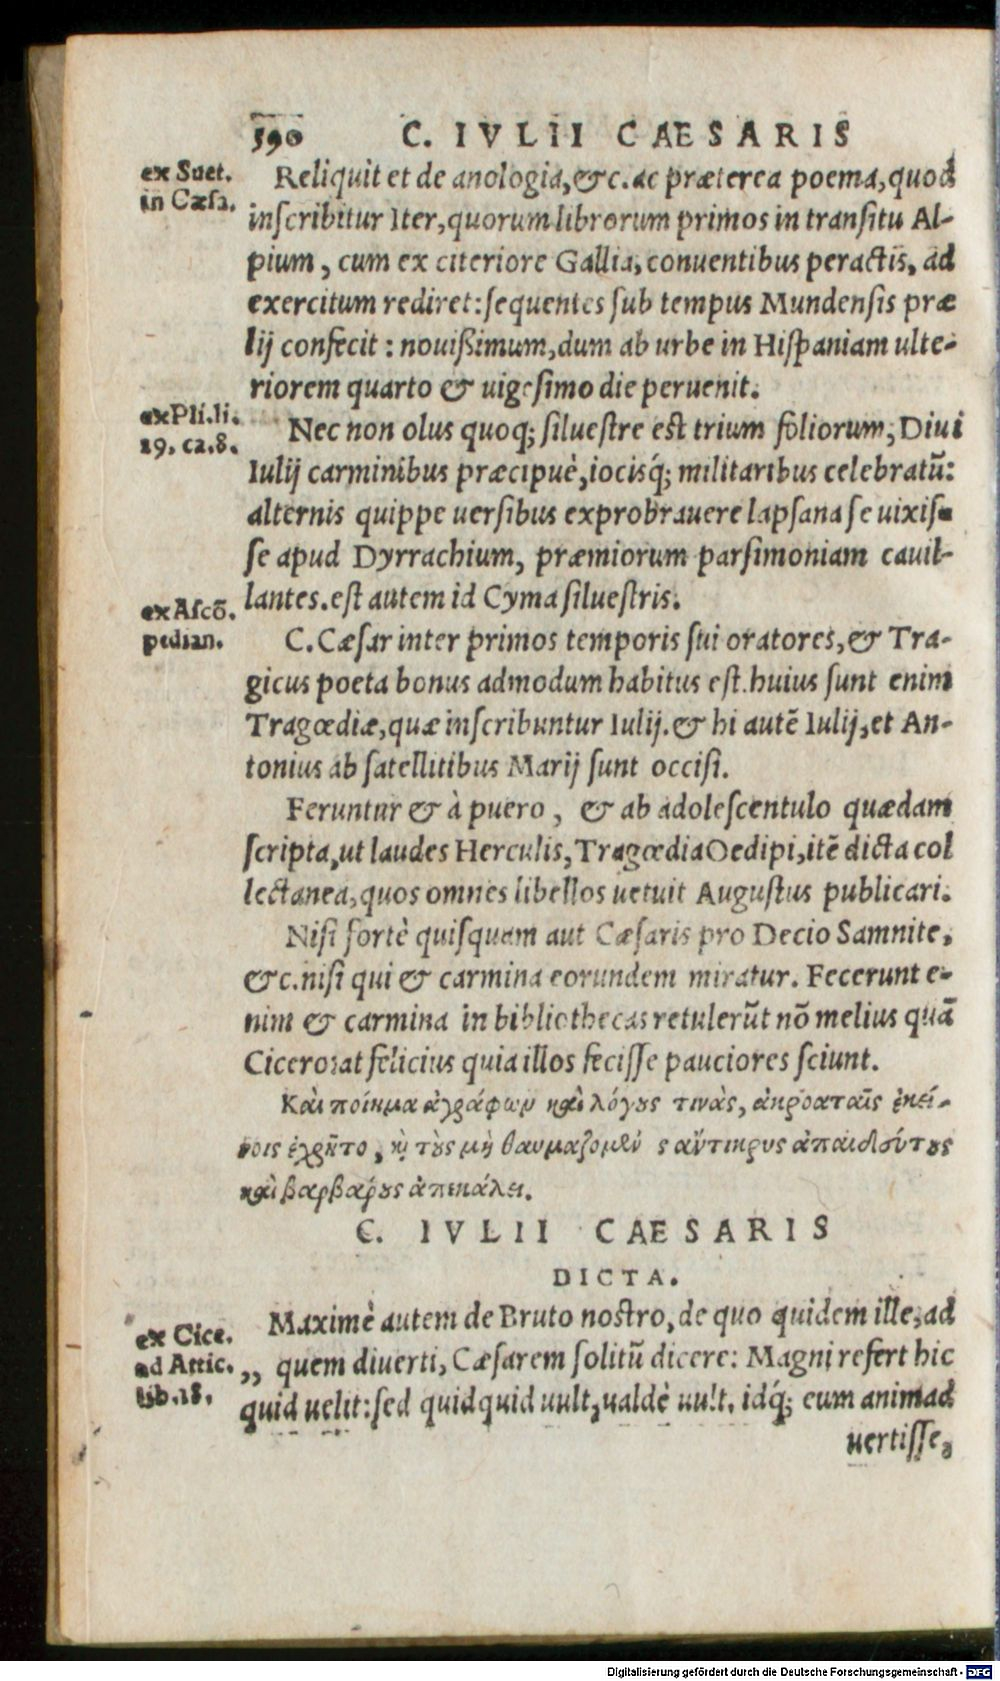 390 C. IVLII CAESARIS
ex Suet.
in Cæsa.
Reliquit et de anologia, &c. ac præterea poema, quod
inſcribitur Iter, quorum librorum primos in tranſitu Al-
pium, cum ex citeriore Gallia, conuentibus peractis, ad
exercitum rediret: ſequentes ſub tempus Mundenſis præ
lij confecit: nouißimum, dum ab urbe in Hiſpaniam ulte-
riorem quarto & uigeſimo die peruenit.
ex Pli. li.
19. ca. 8.
Nec non olus quoq; ſilueſtre est trium foliorum, Diui
Iulij carminibus præcipuè, iocisq́; militaribus celebratũ:
alternis quippe uerſibus exprobrauere lapſana ſe uixiſ-
ſe apud Dyrrachium, præmiorum parſimoniam cauil-
lantes. eſt autem id Cyma ſilueſtris.
ex Aſcõ.
pedian.
C. Cæſar inter primos temporis ſui oratores, & Tra-
gicus poeta bonus admodum habitus est. huius ſunt enim
Tragœdiæ, quæ inſcribuntur Iulij. & hi autẽ Iulij, et An-
tonius ab ſatellitibus Marij ſunt occiſi.
Feruntur & à puero, & ab adoleſcentulo quædam
ſcripta, ut laudes Herculis, Tragœdia Oedipi, itẽ dicta col
lectanea, quos omnes libellos uetuit Auguſtus publicari.
Niſi fortè quiſquam aut Cæſaris pro Decio Samnite,
&c. niſi qui & carmina eorundem miratur. Fecerunt e-
nim & carmina in bibliothecas retulerũt nõ melius quã
Cicero: at felicius quia illos feciſſe pauciores ſciunt.
Καὶ ποίημα ἀγράφων καὶ λόγους τινὰς, ἀκροαταῖς ἐκεί-
νοις ἐχρῆτο, καὶ τοὺς μὴ θαυμαζομέν ς ἄντικρυς ἀπαιδεύτους
καὶ βαρβάρους ἀπεκάλει.
C. IVLII CAESARIS
DICTA.
ex Cice.
ad Attic.
lib. 18.
Maximè autem de Bruto noſtro, de quo quidem ille, ad
„ quem diuerti, Cæſarem ſolitũ dicere: Magni refert hic
quid uelit: ſed quidquid uult, ualdè uult. idq́; eum animad
uertiſſe,
Digitalisierung gefördert durch die Deutsche Forschungsgemeinschaft - DFG